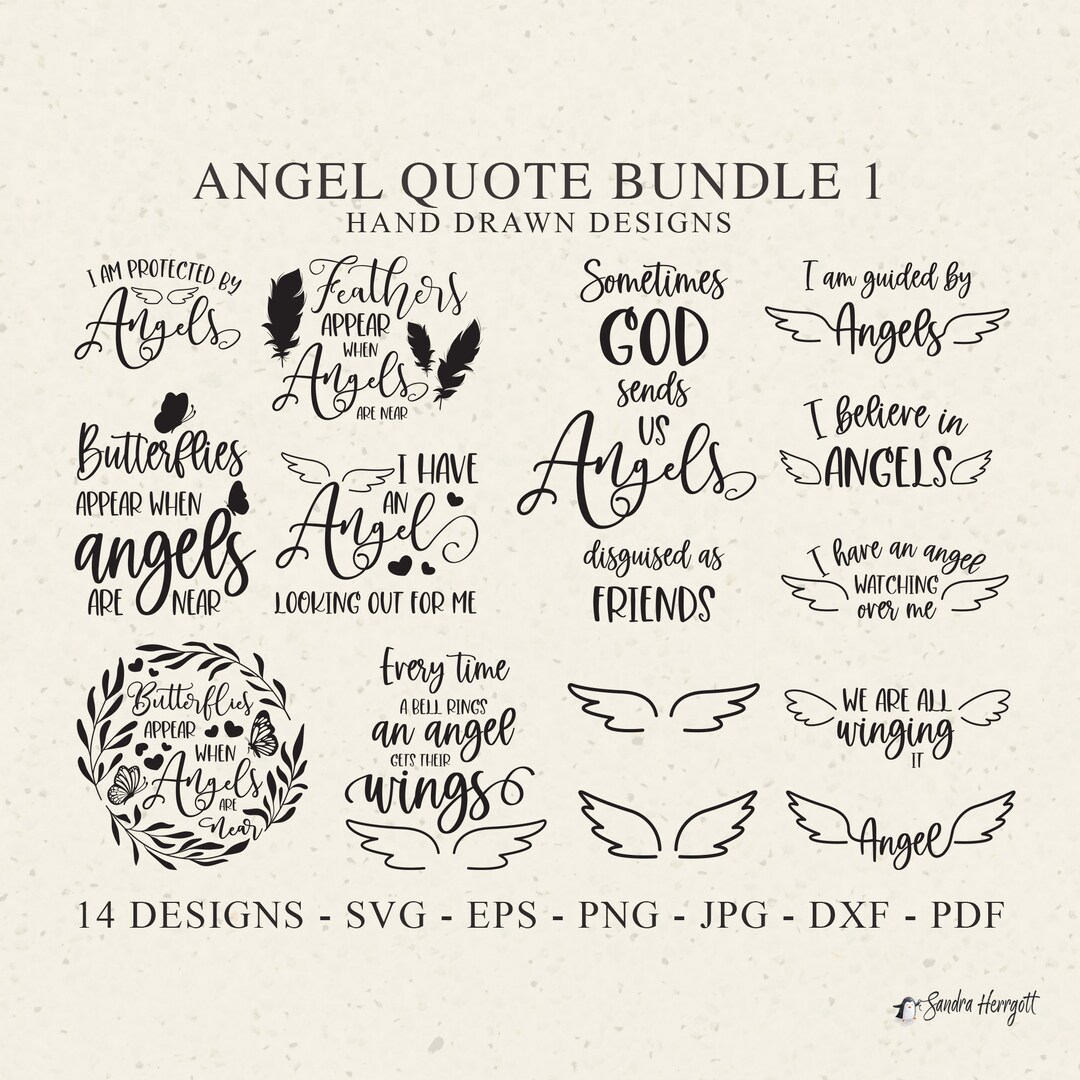 ANGEL QUOTE BUNDLE 1
HAND DRAWN DESIGNS
I AM PROTECTED BY
Angels
Feathers
APPEAR
WHEN
Angels
ARE NEAR
Sometimes
GOD
sends
US
Angels
disguised as
FRIENDS
I am guided by
Angels
Butterflies
APPEAR WHEN
angels
ARE NEAR
I HAVE
AN
Angel
LOOKING OUT FOR ME
I believe in
ANGELS
I have an angel
WATCHING
over me
Butterflies
APPEAR
WHEN
Angels
ARE
Near
Every time
A BELL RINGS
an angel
GETS THEIR
wings
WE ARE ALL
winging
IT
Angel
14 DESIGNS - SVG - EPS - PNG - JPG - DXF - PDF
Sandra Herrgott